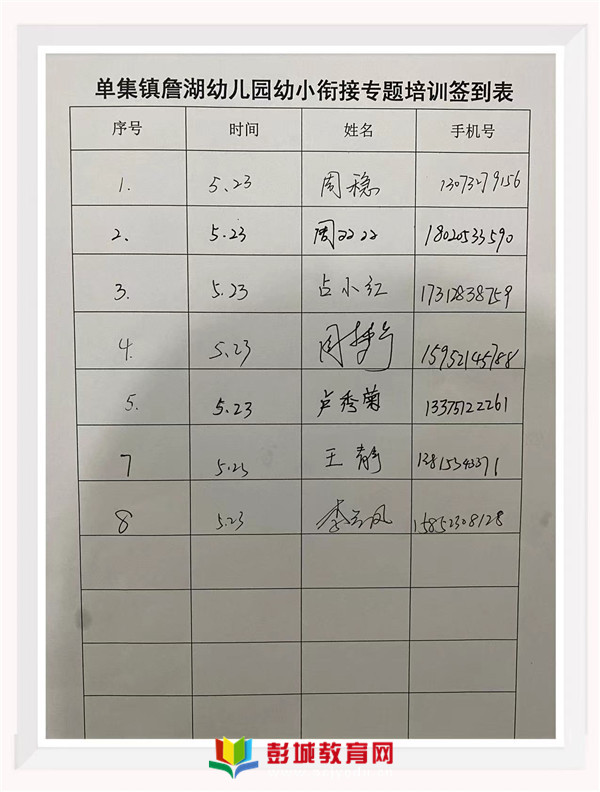 单集镇詹湖幼儿园幼小衔接专题培训签到表
序号 时间 姓名 手机号
1. 5.23 周稳 13073279156
2. 5.23 周双双 18020533590
3. 5.23 占小红 17312838759
4. 5.23 周 15952145788
5. 5.23 卢秀菊 13375122261
7 5.23 王静
8 5.23 李 凤 15852308128
彭城教育网